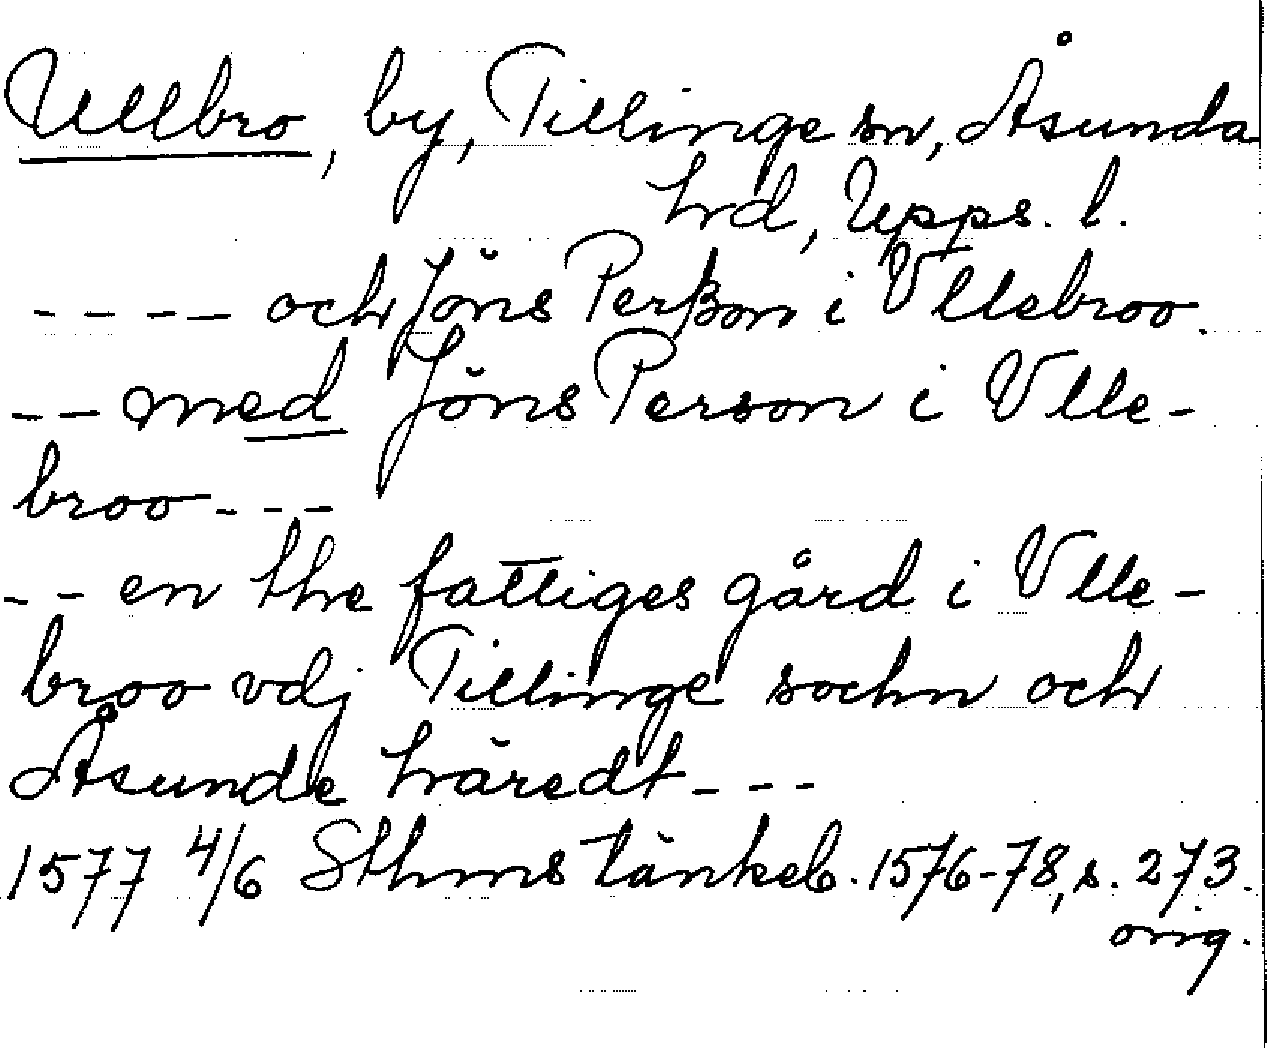 Ullbro, by, Tillinge sn, Åsunda
hrd, Upps. l.
---- och Jöns Perßon i Vllebroo.
-- med Jöns Person i Vlle-
broo ---
-- en the fattiges gård i Vlle-
broo vdj Tillinge sochn och
Åsunde häredt ---
1577 4/6 Sthms tänkeb. 1576-78, s. 273.
orig.